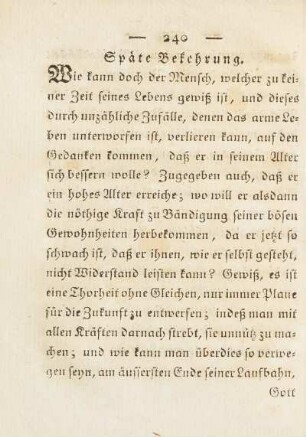 — 240 —
Späte Bekehrung.
Wie kann doch der Mensch, welcher zu kei-
ner Zeit seines Lebens gewiß ist, und dieses
durch unzählige Zufälle, denen das arme Le-
ben unterworfen ist, verlieren kann, auf den
Gedanken kommen, daß er in seinem Alter
sich bessern wolle? Zugegeben auch, daß er
ein hohes Alter erreiche; wo will er alsdann
die nöthige Kraft zu Bändigung seiner bösen
Gewohnheiten herbekommen, da er jetzt so
schwach ist, daß er ihnen, wie er selbst gesteht,
nicht Widerstand leisten kann? Gewiß, es ist
eine Thorheit ohne Gleichen, nur immer Plane
für die Zukunft zu entwerfen; indeß man mit
allen Kräften darnach strebt, sie unnütz zu ma-
chen; und wie kann man überdies so verwe-
gen seyn, am äussersten Ende seiner Laufbahn,
Gott